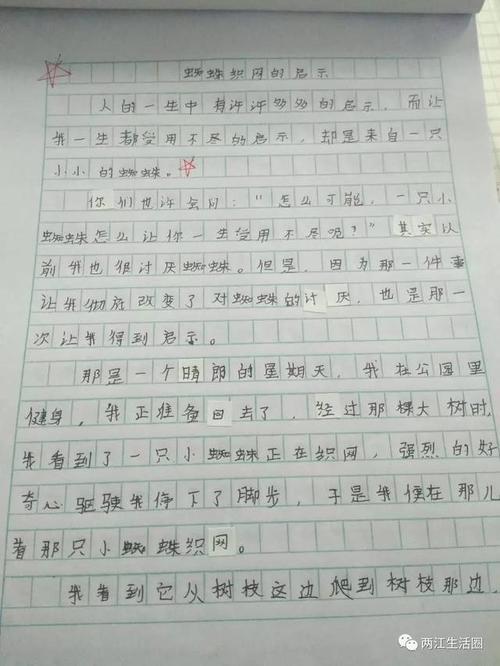 蜘蛛织网的启示
人的一生中有许许多多的启示，而让
我一生都受用不尽的启示，却是来自一只
小小的蜘蛛。
你们也许会问："怎么可能，一只小
蜘蛛怎么让你一生受用不尽呢？"其实以
前我也很讨厌蜘蛛。但是，因为那一件事
让我彻底改变了对蜘蛛的讨厌，也是那一
次让我得到启示。
那是一个晴朗的星期天，我在公园里
健身，我正准备回去了，经过那棵大树时，
我看到了一只小蜘蛛正在织网，强烈的好
奇心驱驶我停下了脚步，于是我便在那儿
看那只小蜘蛛织网。
我看到它从树枝这边爬到树枝那边，
两江生活圈